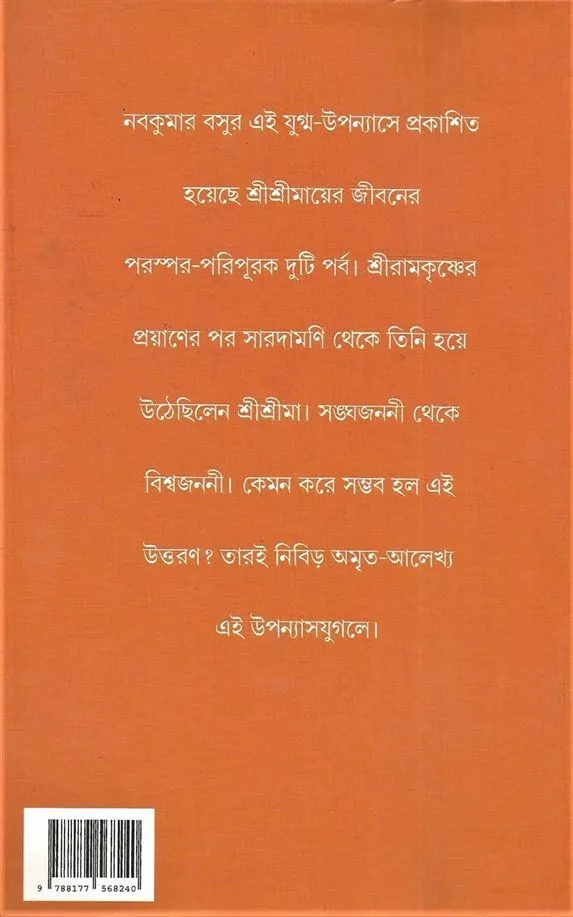 নবকুমার বসুর এই যুগ্ম-উপন্যাসে প্রকাশিত
হয়েছে শ্রীশ্রীমায়ের জীবনের
পরস্পর-পরিপূরক দুটি পর্ব। শ্রীরামকৃষ্ণের
প্রয়াণের পর সারদামণি থেকে তিনি হয়ে
উঠেছিলেন শ্রীশ্রীমা। সঙ্ঘজননী থেকে
বিশ্বজননী। কেমন করে সম্ভব হল এই
উত্তরণ? তারই নিবিড় অমৃত-আলেখ্য
এই উপন্যাসযুগলে।
9 788177 568240